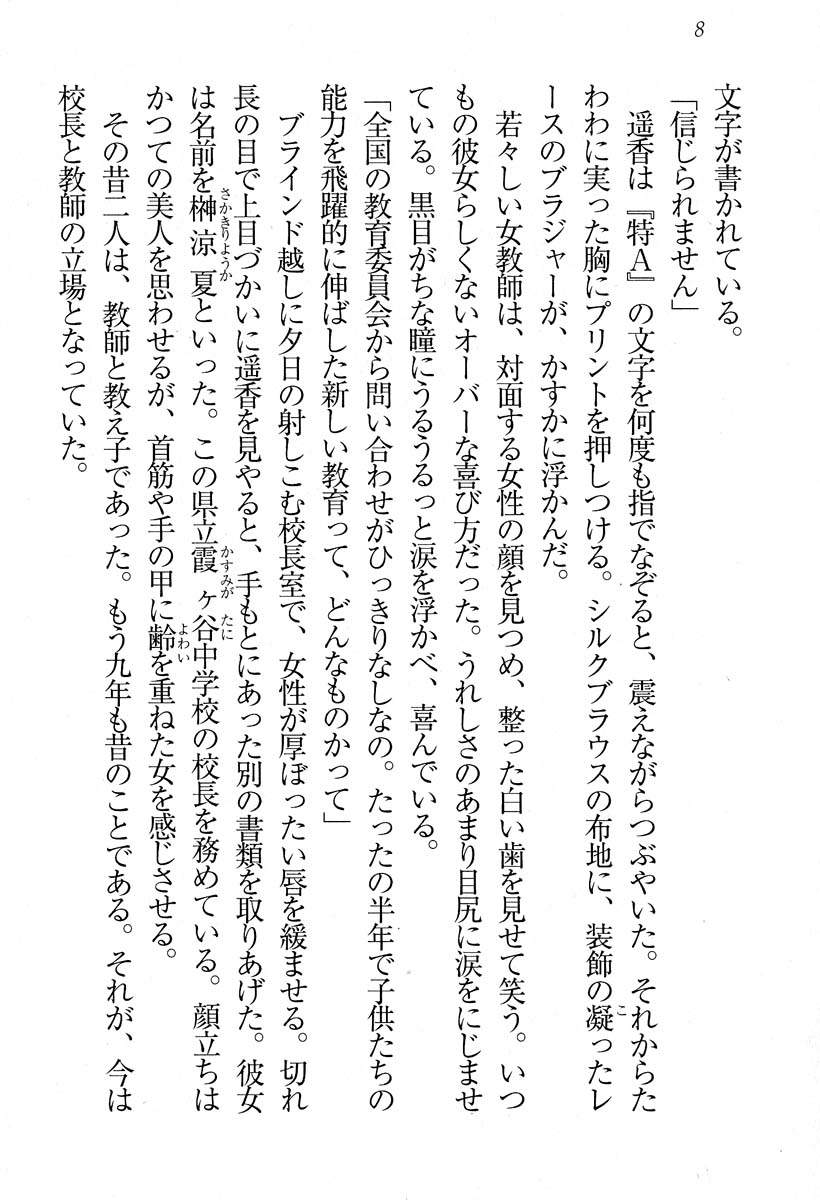 8
文字が書かれている。
「信じられません」
　遥香は『特A』の文字を何度も指でなぞると、震えながらつぶやいた。それからた
わわに実った胸にプリントを押しつける。シルクブラウスの布地に、装飾の凝ったレ
ースのブラジャーが、かすかに浮かんだ。
　若々しい女教師は、対面する女性の顔を見つめ、整った白い歯を見せて笑う。いつ
もの彼女らしくないオーバーな喜び方だった。うれしさのあまり目尻に涙をにじませ
ている。黒目がちな瞳にうるうるっと涙を浮かべ、喜んでいる。
「全国の教育委員会から問い合わせがひっきりなしなの。たったの半年で子供たちの
能力を飛躍的に伸ばした新しい教育って、どんなものかって」
　ブラインド越しに夕日の射しこむ校長室で、女性が厚ぼったい唇を緩ませる。切れ
長の目で上目づかいに遥香を見やると、手もとにあった別の書類を取りあげた。彼女
は名前を榊涼夏といった。この県立霞ヶ谷中学校の校長を務めている。顔立ちは
かつての美人を思わせるが、首筋や手の甲に齢を重ねた女を感じさせる。
　その昔二人は、教師と教え子であった。もう九年も昔のことである。それが、今は
校長と教師の立場となっていた。